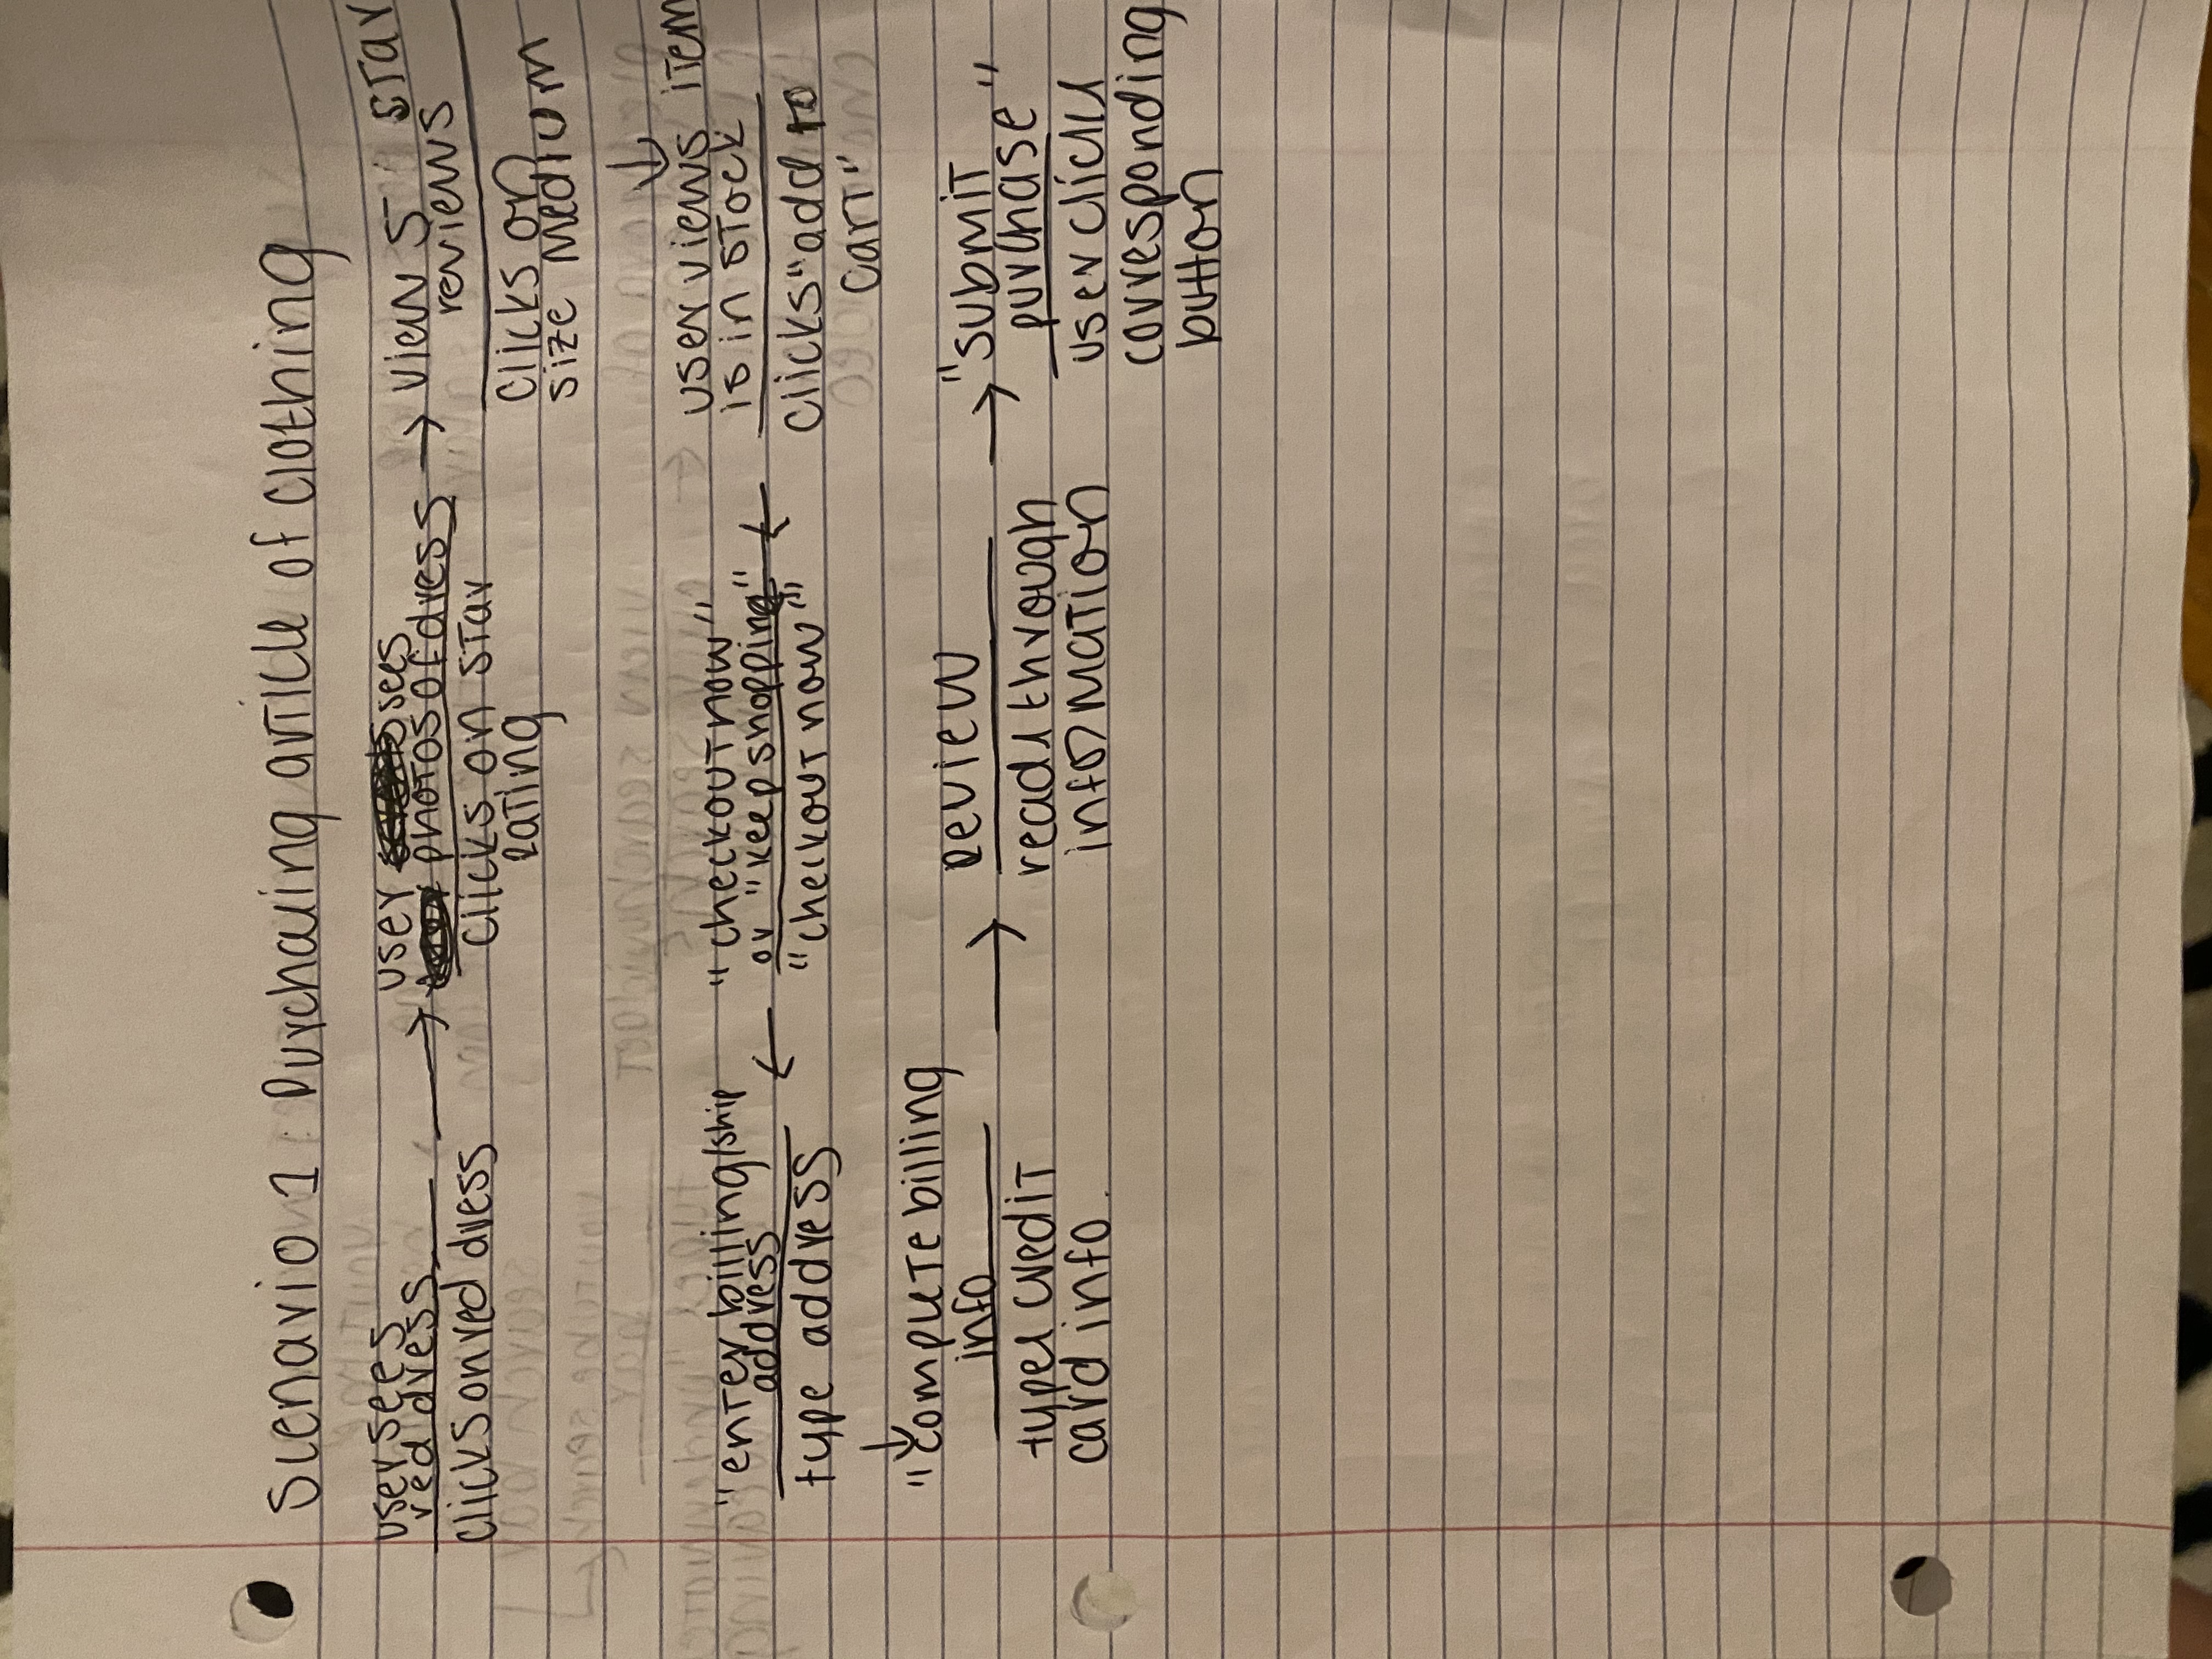 Scenario 1: Purchasing article of clothing
user sees
red dress
clicks on red dress
user sees
photos of dress
clicks on star
rating
view 5 star
reviews
clicks on
size medium
user views item
is in stock
clicks "add to
cart"
"checkout now"
or "keep shopping"
"checkout now"
"enter billing/ship
address
type address
"complete billing
info
types credit
card info.
Review
reads through
information
"submit
purchase"
user clicks
corresponding
button